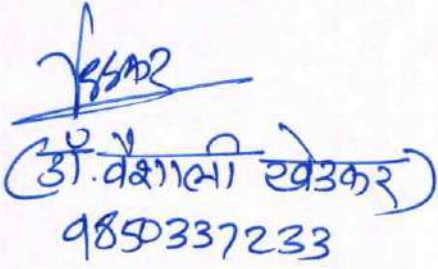 (डॉ. वैशाली खेडकर)
9850337233